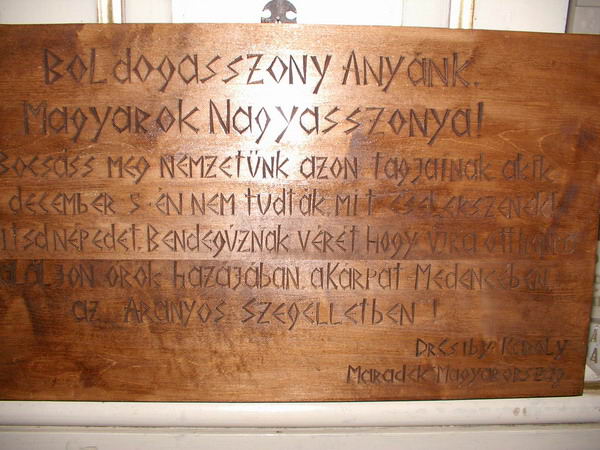 Boldogasszony Anyánk.
Magyarok Nagyasszonya!
Bocsáss meg nemzetünk azon tagjainak akik
december 5-én nem tudták, mit cselekszenek
népedet, Bendegúznak véret, hogy újra otthonra
örök hazájában, a Kárpát Medencében,
az Aranyos Szegelletben!
Károly
Maradék Magyarország